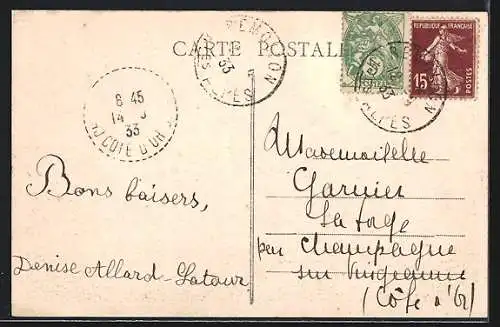 CARTE POSTALE
REPUBLIQUE FRANÇAISE
15
POSTES
33
ALPES
8 45
14
33
COTE D'OR
Mademoiselle
Garnier
La forge
par Champagne
sur Vingeanne
(Côte d'Or)
Bons baisers,
Denise Allard-Latour